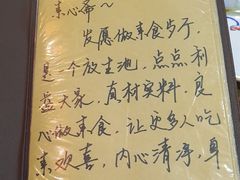 素心斋~
发愿做素食岁厅
是一个放生池，点点利
益大家，真材实料，良
心做素食，让更多人吃
素欢喜，内心清净，单